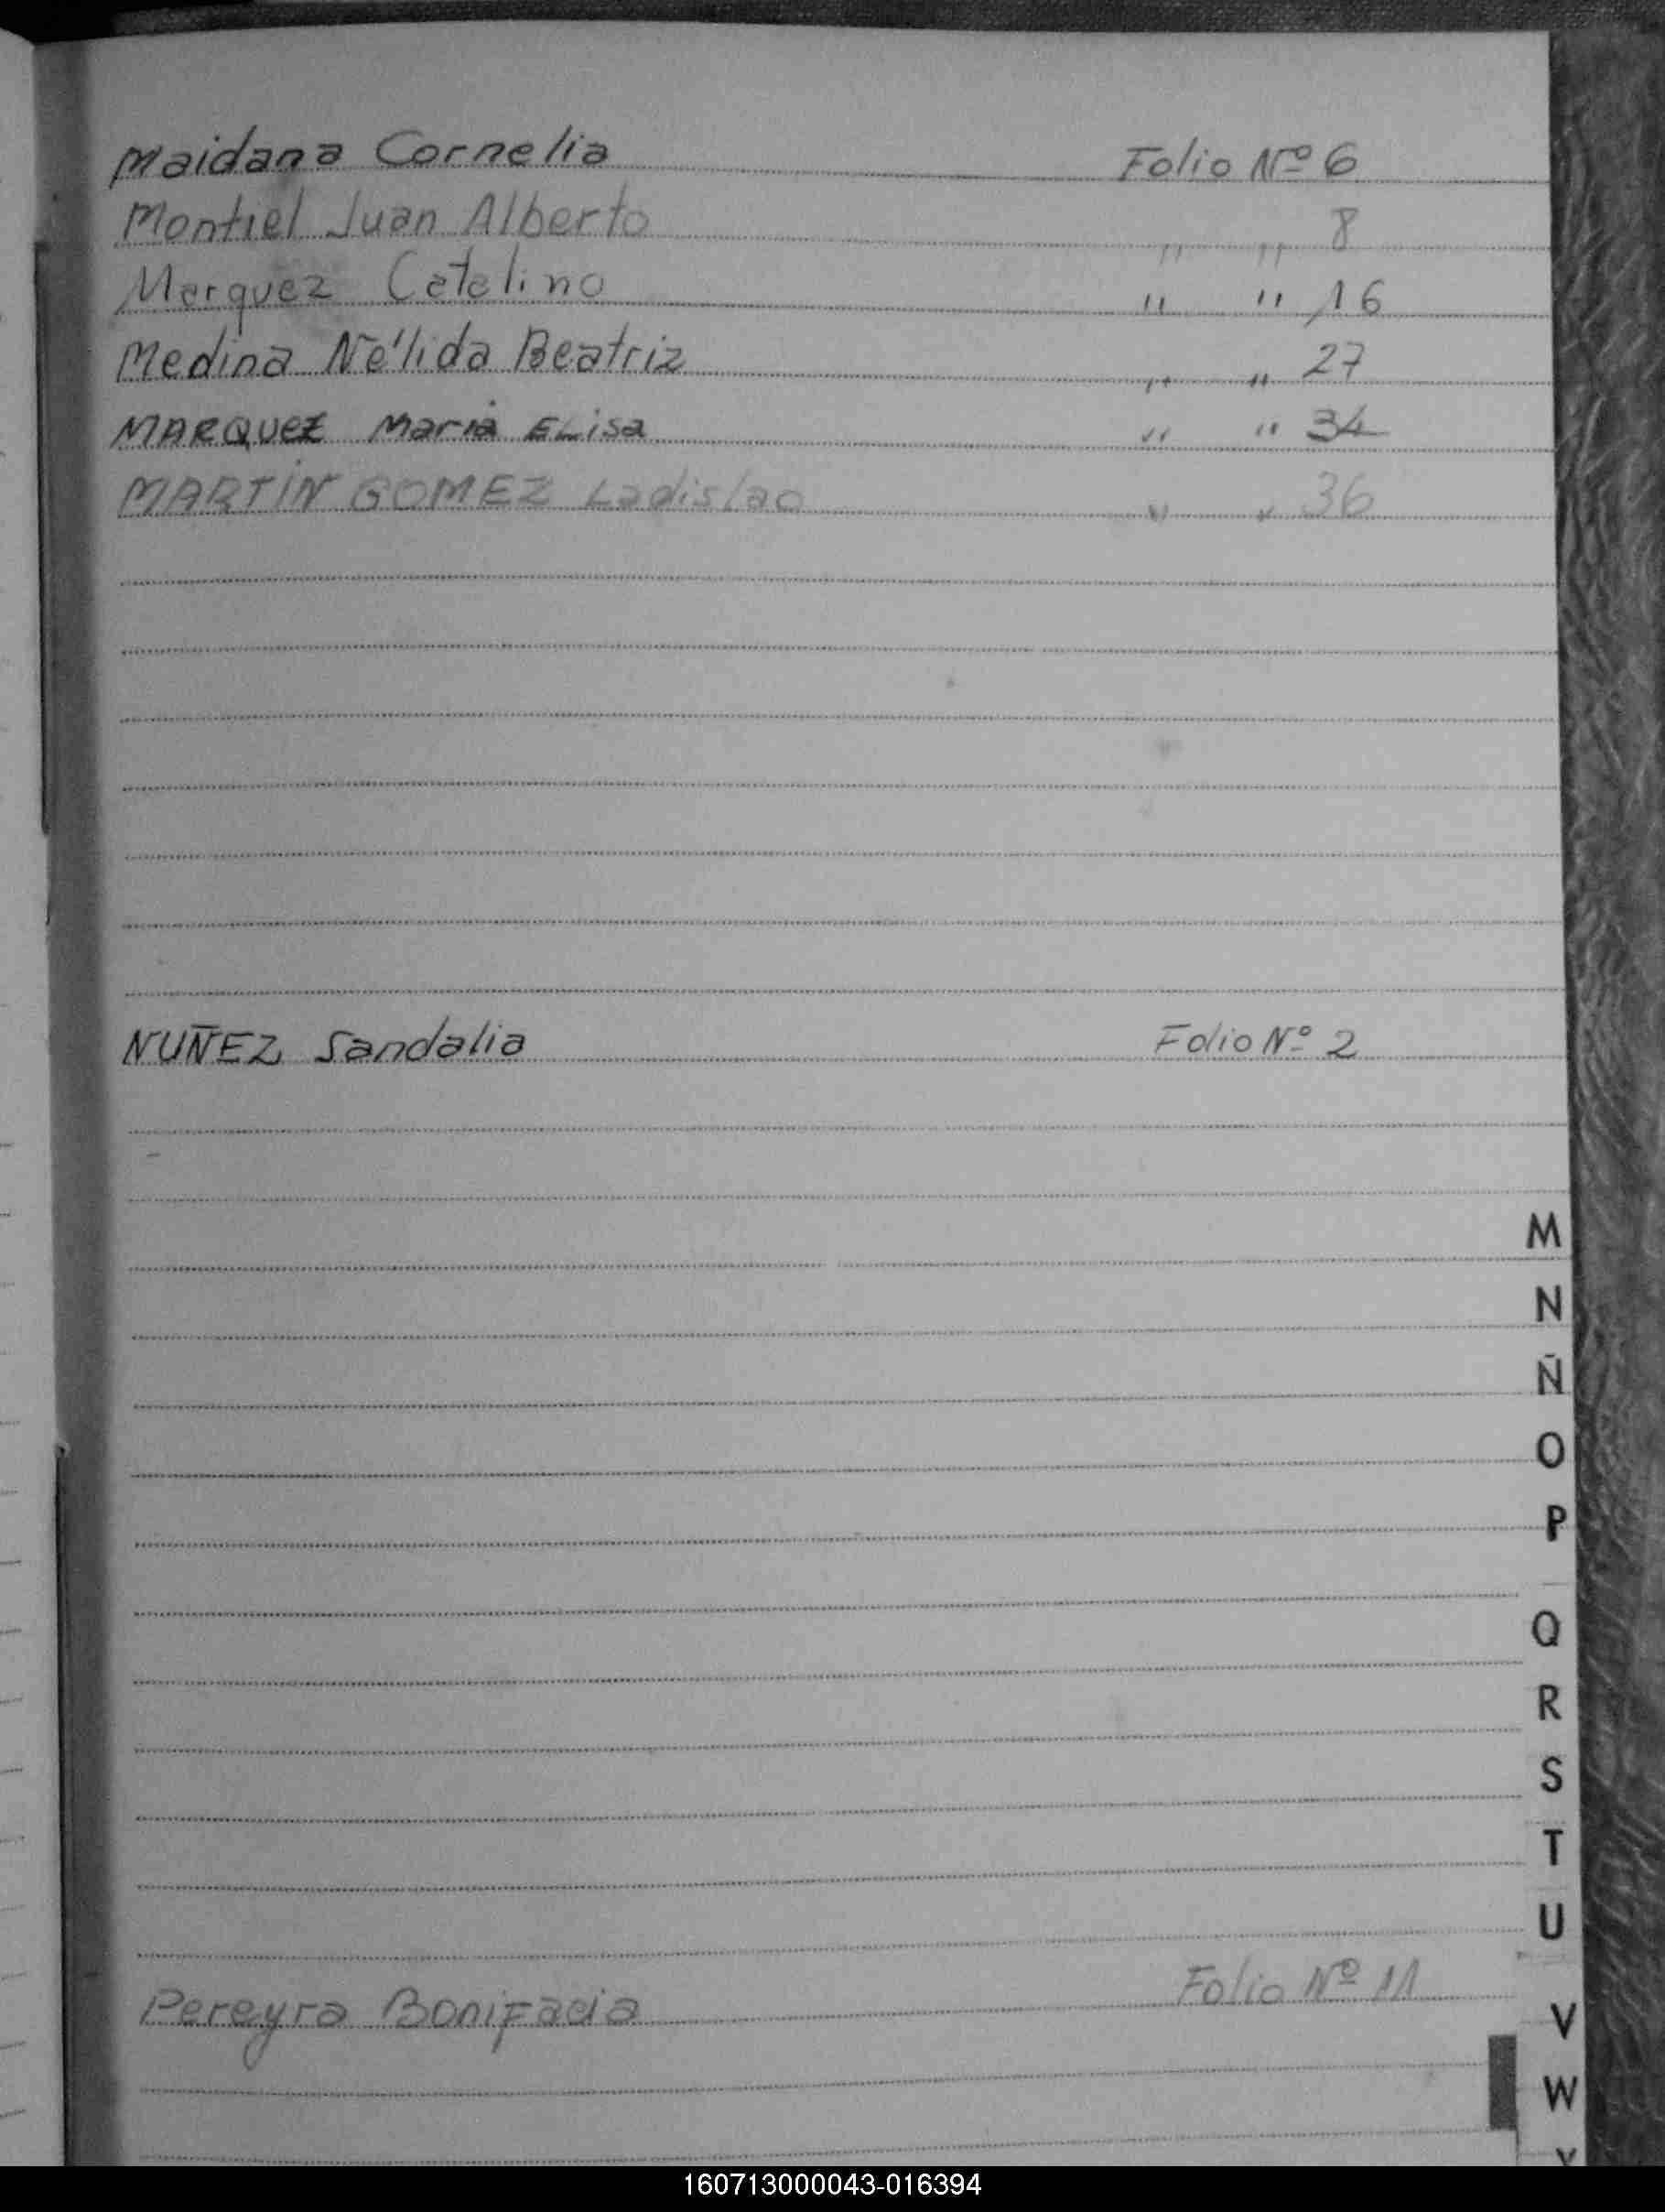 Maidana Cornelia Folio Nº 6
Montiel Juan Alberto " " 8
Marquez Catalino " " 16
Medina Nélida Beatriz " " 27
MARQUEZ Maria ELisa " " 34
MARTIN GOMEZ Ladislao " " 36
NUÑEZ Sandalia Folio Nº 2
M
N
Ñ
O
P
Q
R
S
T
U
Pereyra Bonifacia Folio Nº 11
V
W
160713000043-016394